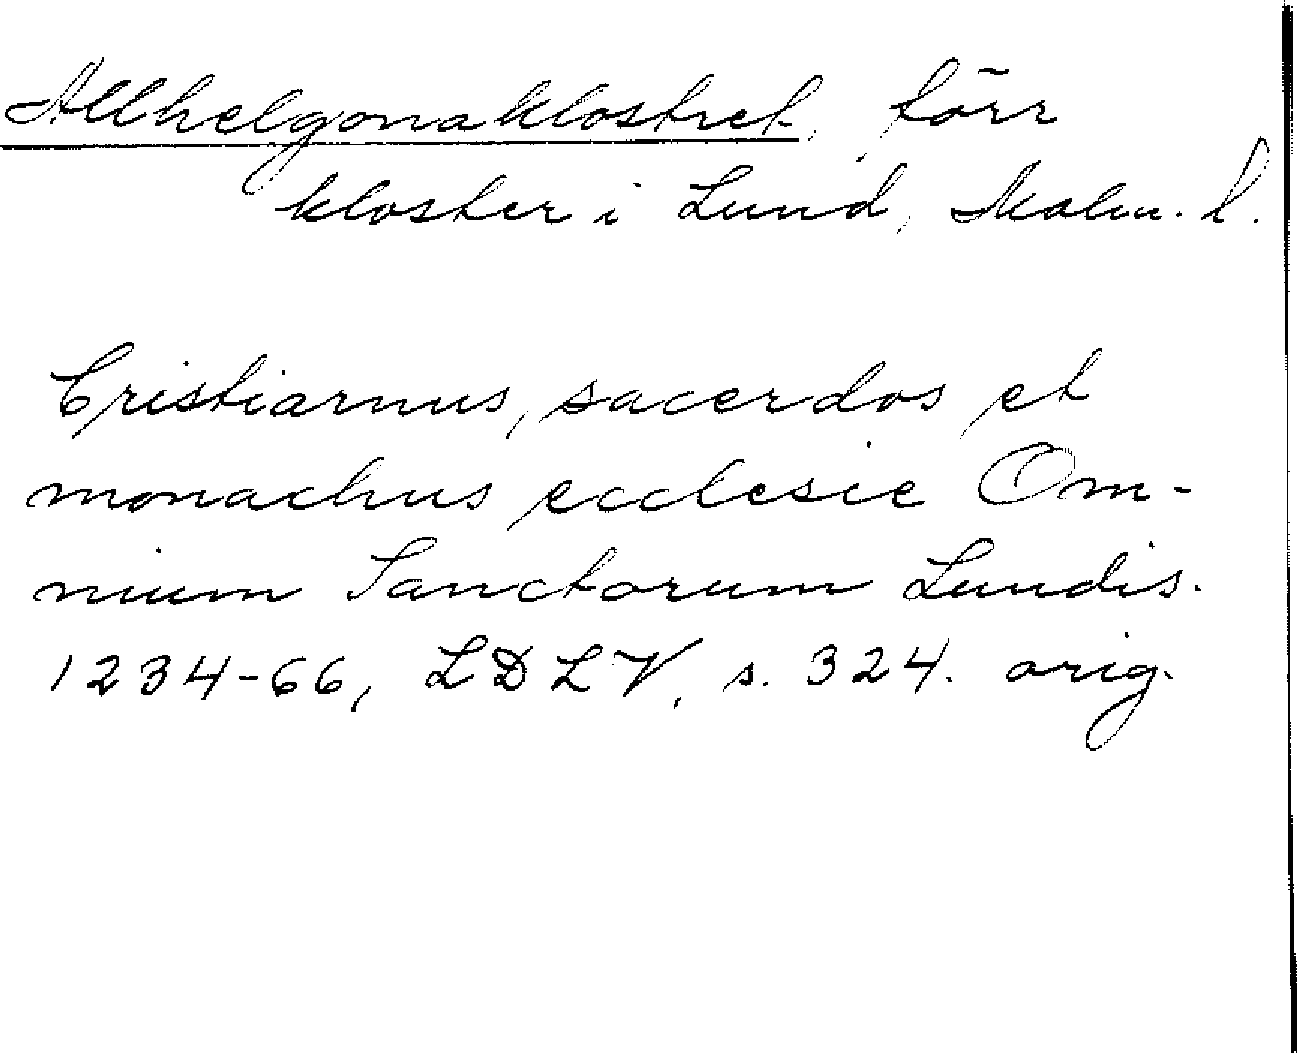 Allhelgonaklostret, förr
kloster i Lund, Malm. l.
Cristiarnus, sacerdos et
monachus ecclesie Om-
nium Sanctorum Lundis.
1234-66, LDLV, s. 324. orig.